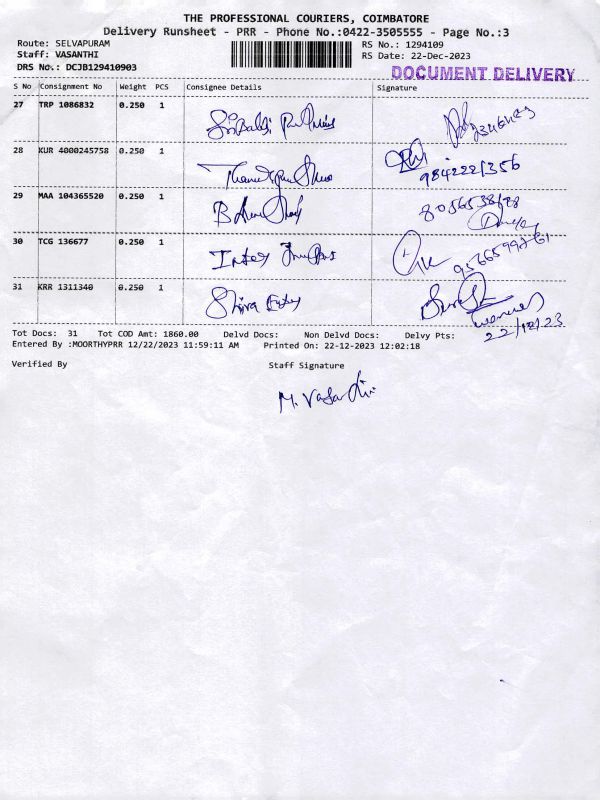 THE PROFESSIONAL COURIERS, COIMBATORE
Delivery Runsheet - PRR - Phone No.:0422-3505555 - Page No.:3
Route: SELVAPURAM
RS No.: 1294109
Staff: VASANTHI
RS Date: 22-Dec-2023
DRS No.: DCJB129410903
DOCUMENT DELIVERY
S No Consignment No Weight PCS Consignee Details Signature
27 TRP 1086832 0.250 1
28 KUR 4000245758 0.250 1
9842221356
29 MAA 104365520 0.250 1
30 TCG 136677 0.250 1
31 KRR 1311340 0.250 1 Shiva
22/12/23
Tot Docs: 31 Tot COD Amt: 1860.00 Delvd Docs: Non Delvd Docs: Delvy Pts:
Entered By :MOORTHYPRR 12/22/2023 11:59:11 AM Printed On: 22-12-2023 12:02:18
Verified By Staff Signature
M. Vasanthi